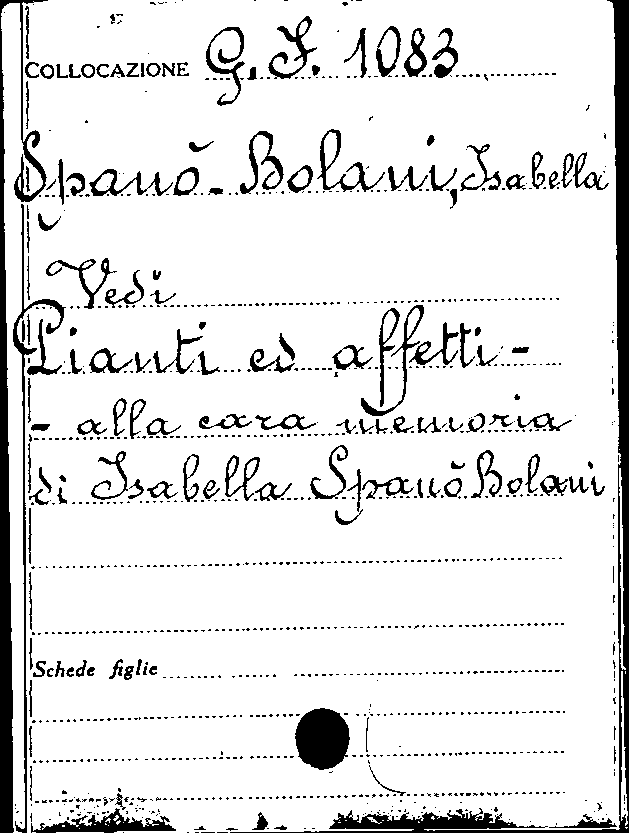 COLLOCAZIONE G. F. 1083
Spanò-Bolani, Isabella
Vedi
Pianti ed affetti -
- alla cara memoria
di Isabella Spanò Bolani
Schede figlie